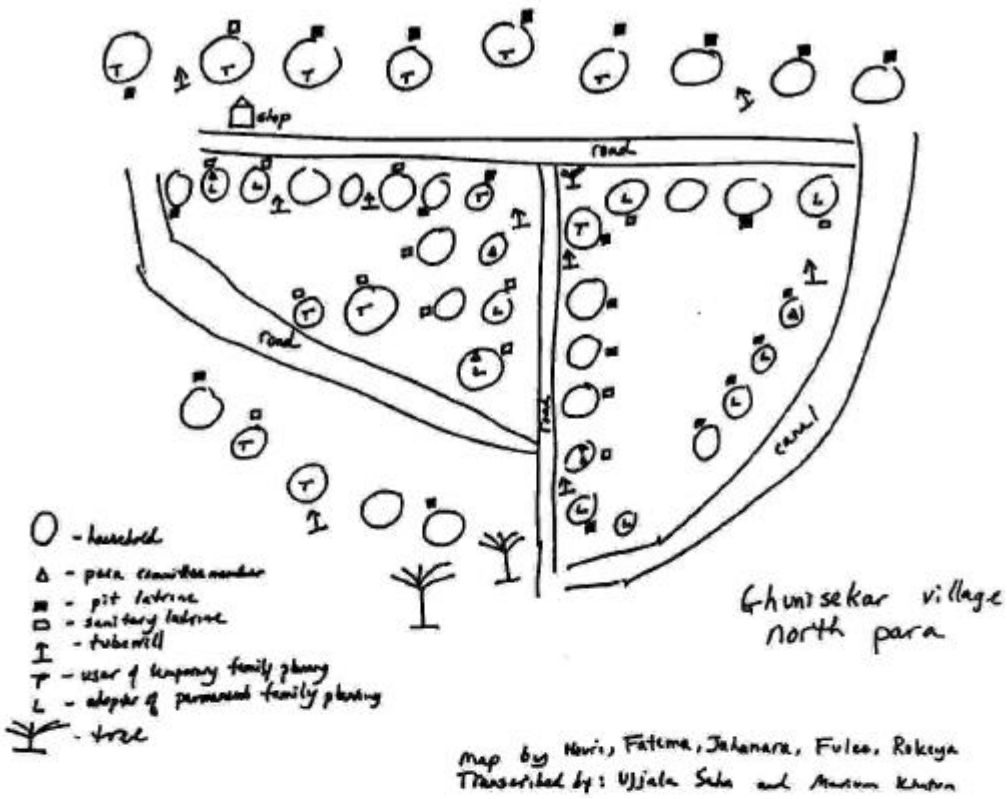 shop
road
road
road
canal
- household
- para committee member
- pit latrine
- sanitary latrine
- tubewell
T - user of temporary family planning
L - adopter of permanent family planning
- tree
Ghunisekar village
north para
map by Houri, Fatema, Jahanara, Fulee, Rokeya
Transcribed by: Ujjala Saha and Marium Khatun